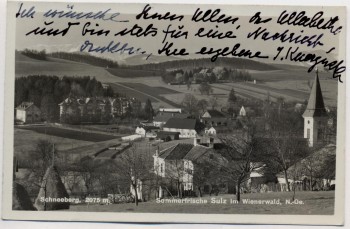 Ich wünsche Ihnen Allen, das Allerbeste
und bin stets für eine Nachricht,
dankbar, Ihre ergebene J.
Schneeberg, 2075 m.
Sommerfrische Sulz im Wienerwald, N.-Oe.